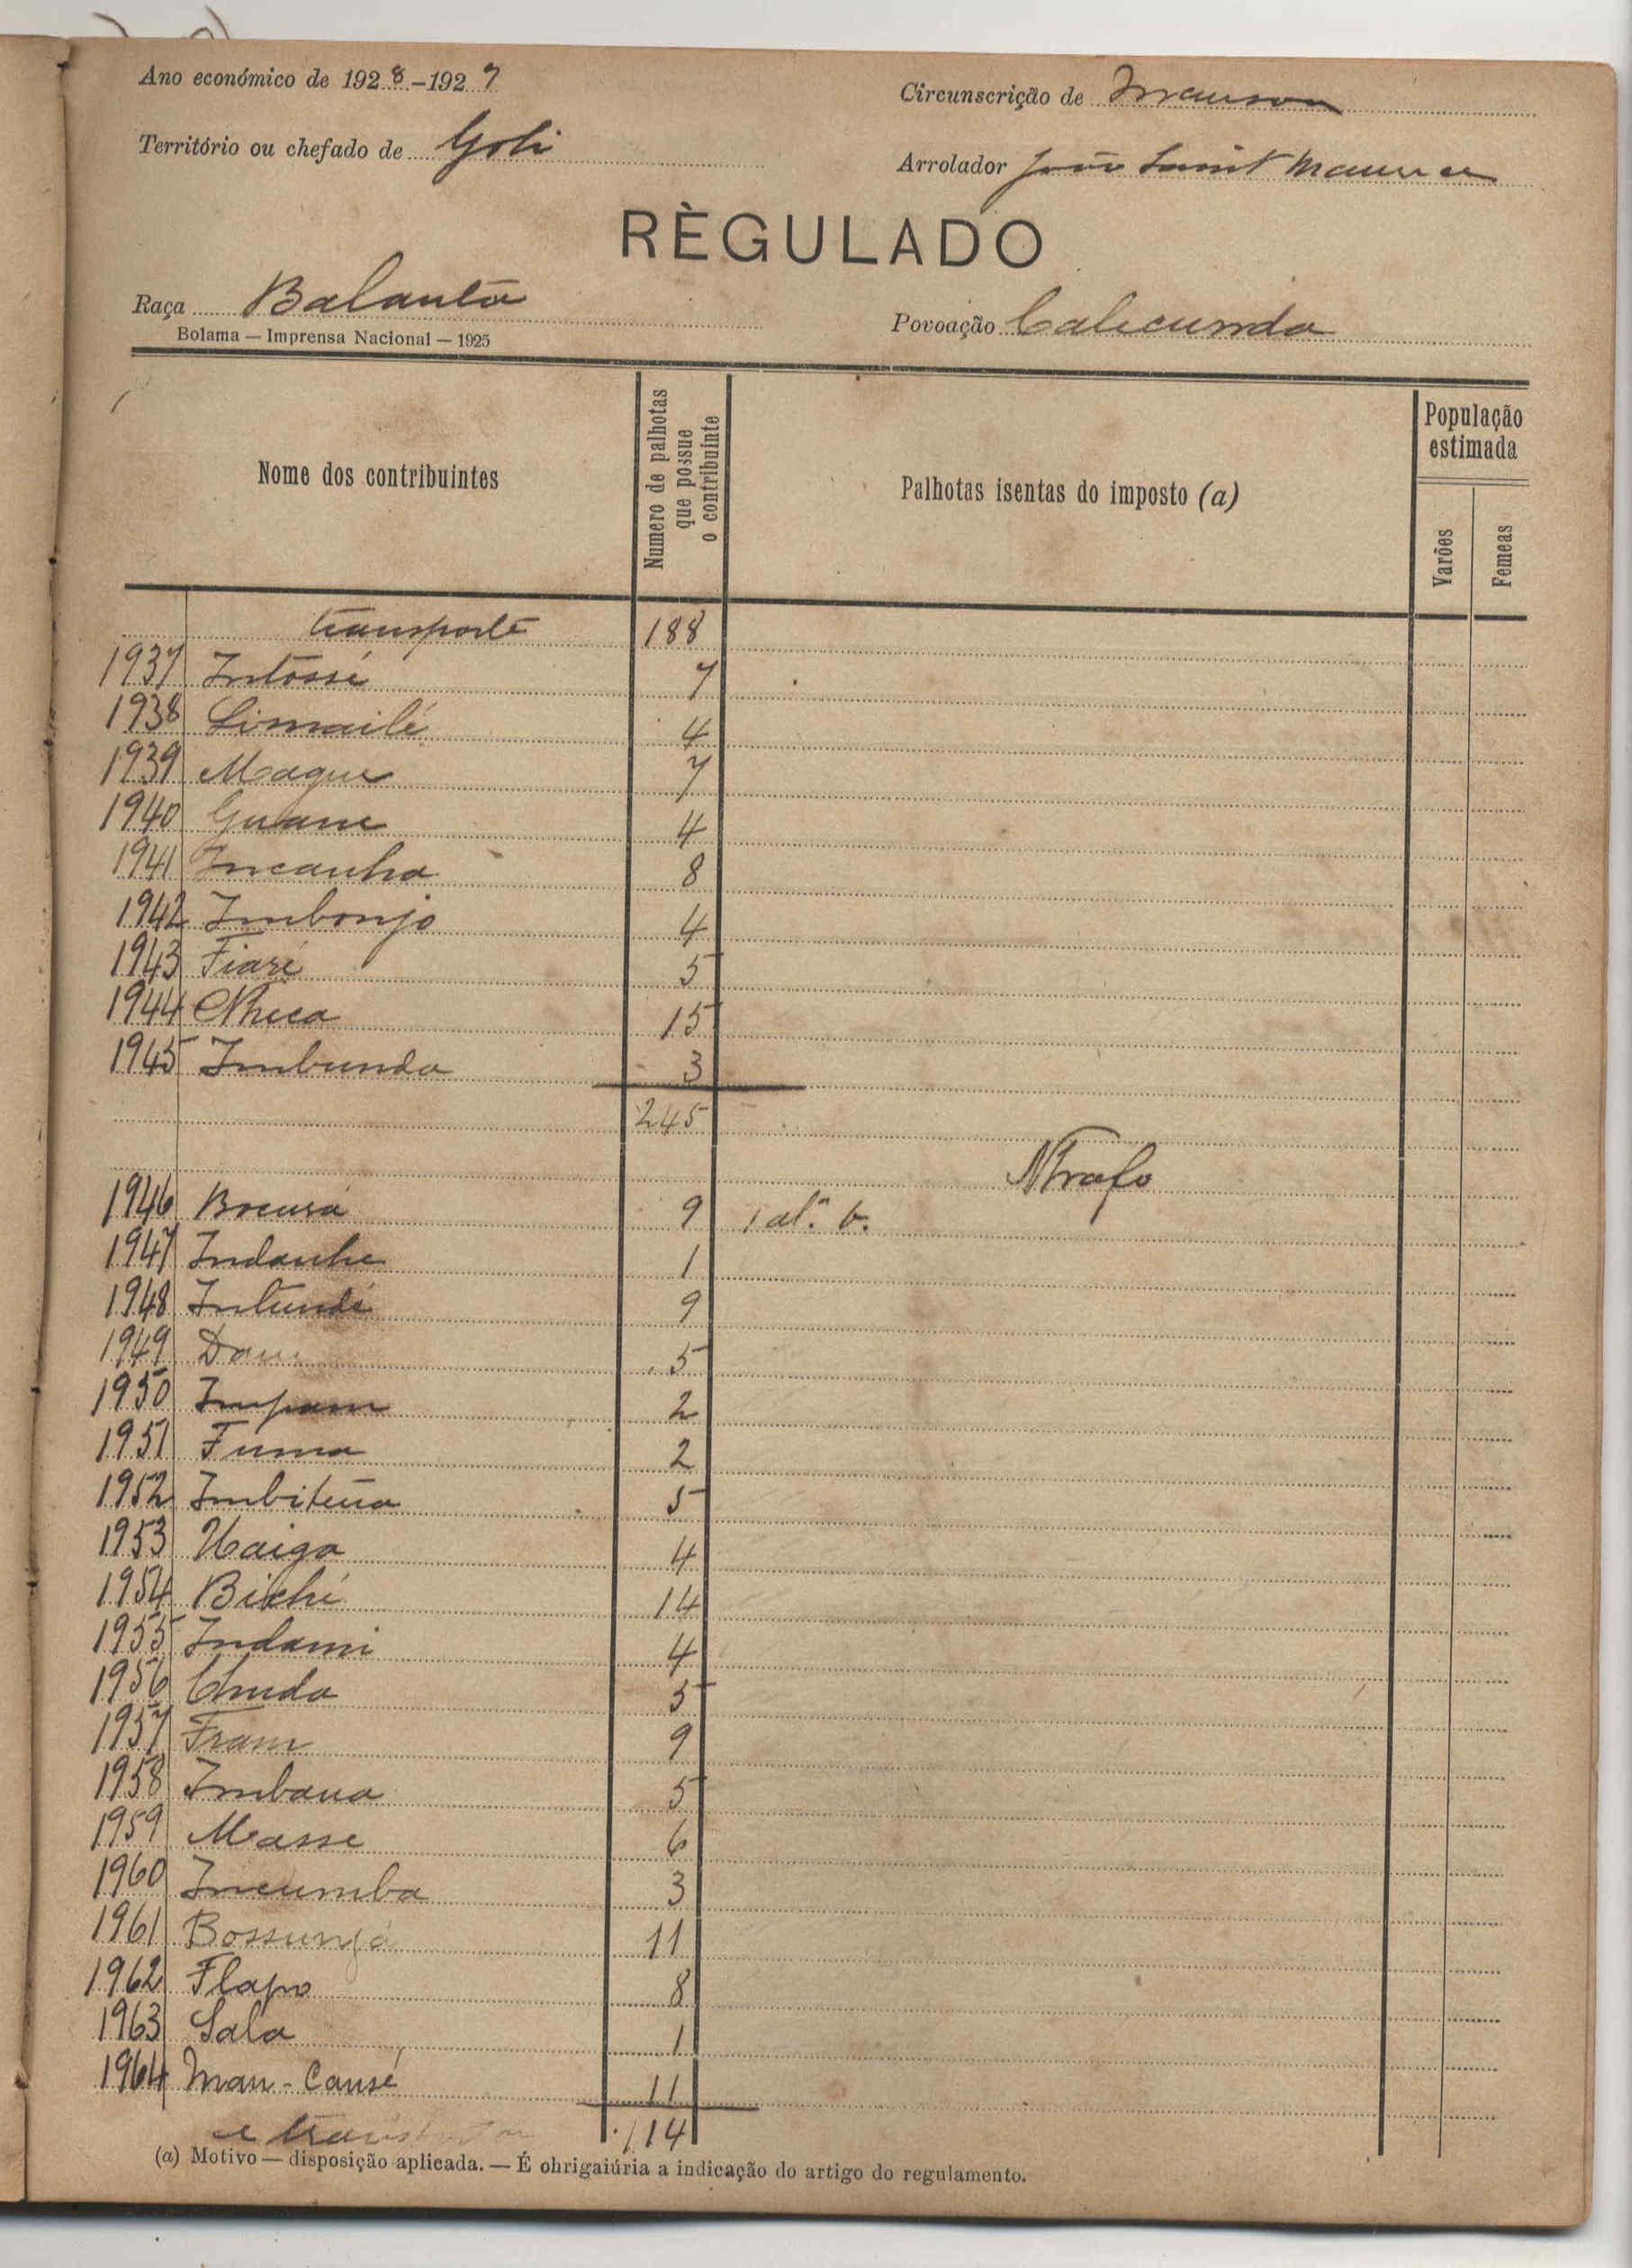 Ano económico de 1928-1929
Circunscrição de Mansoa
Território ou chefado de Goli
Arrolador João Saint Maurice
RÈGULADO
Raça Balanta
Povoação Calicunda
Bolama — Imprensa Nacional — 1925
Nome dos contribuintes
Numero de palhotas que possue o contribuinte
Palhotas isentas do imposto (a)
População estimada
Varões
Femeas
transporte 188
1937 Intossé 7
1938 Simailé 4
1939 Mague 7
1940 Guane 4
1941 Incanha 8
1942 Imbonjo 4
1943 Fiaré 5
1944 Nheca 15
1945 Imbunda 3
245
Ntrafo
1946 9 1 al.ª b.
1947 Indanhe 1
1948 Intundé 9
1949 5
1950 Impam 2
1951 Fuma 2
1952 Imbitena 5
1953 Naiga 4
1954 Bidhé 14
1955 Indami 4
1956 Chuda 5
1957 Fram 9
1958 Imbana 5
1959 Masse 6
1960 Incumba 3
1961 Bossungá 11
1962 Flapo 8
1963 Sala 1
1964 Man-Causé 11
114
(a) Motivo — disposição aplicada. — É ohrigaiúria a indicação do artigo do regulamento.